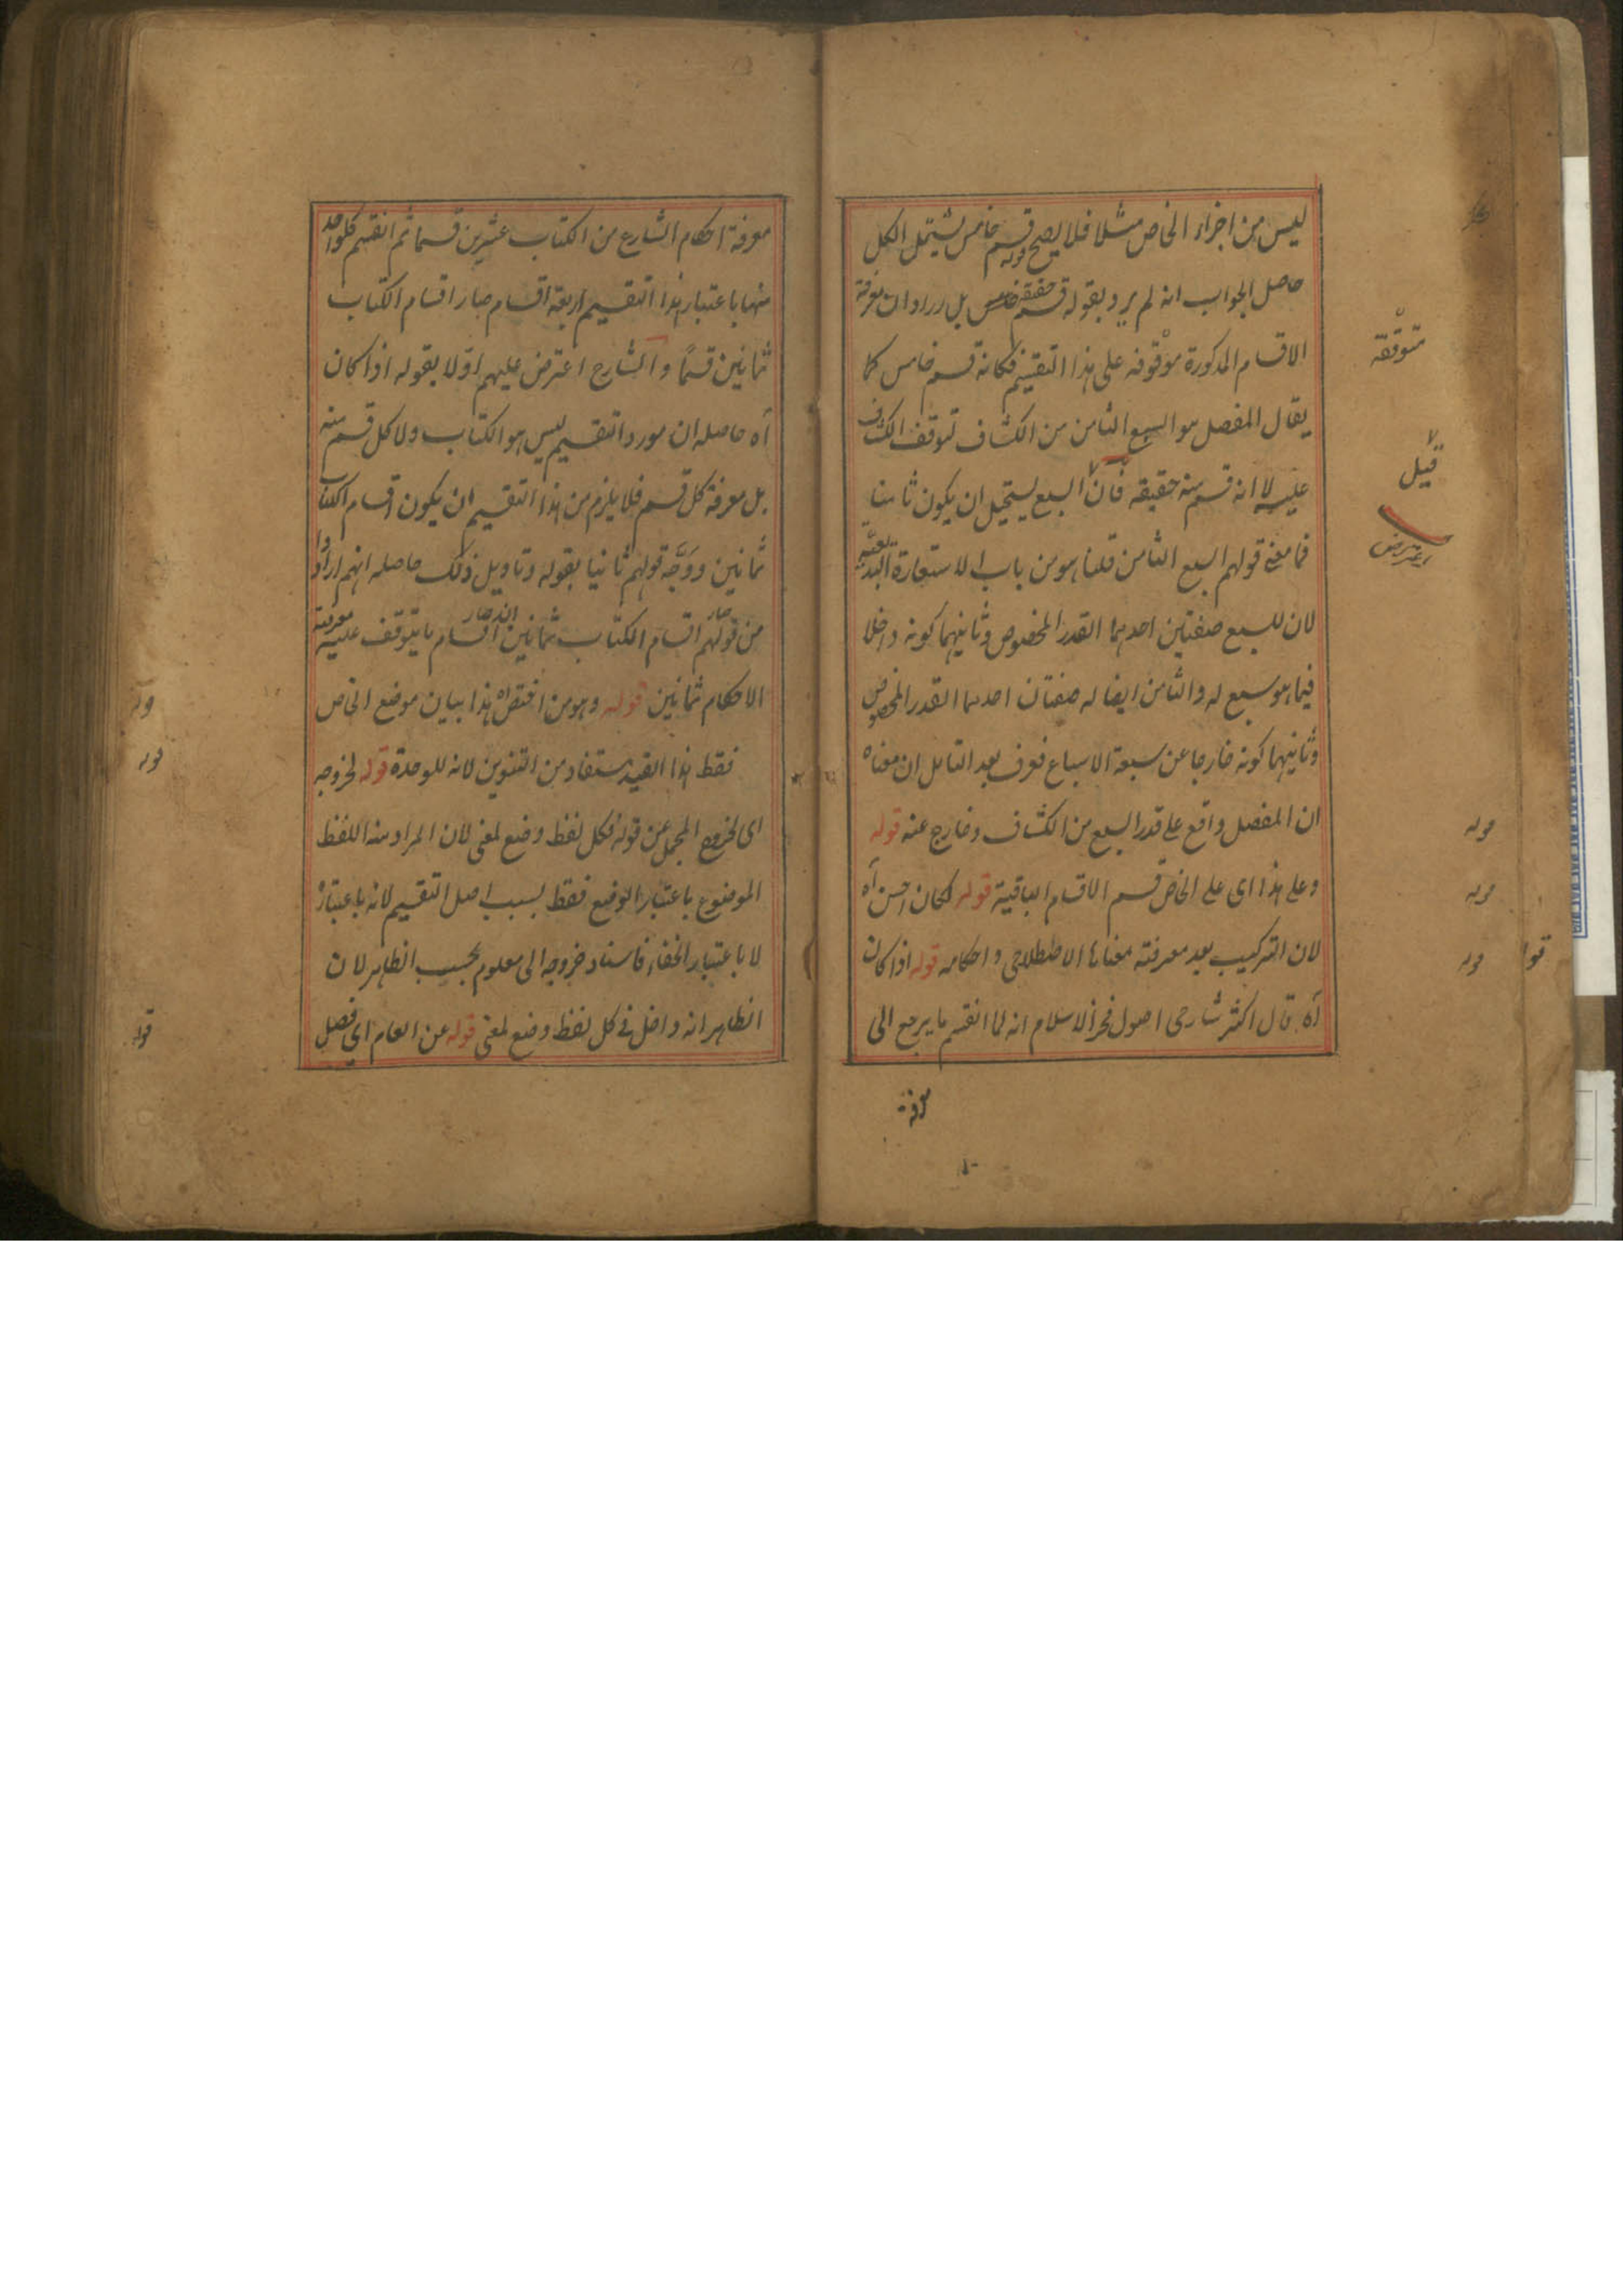 ليس من اجزاء الخاص مثلا فلا يصح قوله قسم خامس يشتمل الكل
حاصل الجواب انه لم يرد بقوله قسم خامس حقيقة بل اراد ان معرفة
الاقسام المذكورة موقوفه على هذا التقسيم فكانه قسم خامس كما
يقال المفصل هو السبع الثامن من الكشاف لتوقف الكشاف
عليه لا انه قسم منه حقيقه فان السبع يستحيل ان يكون ثامنا
فما معنى قولهم السبع الثامن قلنا هو من باب الاستعارة التبعية
لان للسبع صفتين احدهما القدر المخصوص وثانيهما كونه داخلا
فيما هو سبع له والثامن ايضا له صفتان احدهما القدر المخصوص
وثانيهما كونه خارجا عن سبعة الاسباع فعرف بعد التامل ان معناه
ان المفصل واقع على قدر السبع من الكشاف وخارج عنه قوله
وعلى هذا اى على الخاص قسم الاقسام الباقية قوله لكان احسن آه
لان التركيب بعد معرفته معناها الاصطلاحى واحكامه قوله اذا كان
آه قال اكثر شارحى اصول فخر الاسلام انه لما انقسم ما يرجع الى
معرفة
متوقفه
قيل
اعترض
قوله
قوله
قوله
معرفة احكام الشارع من الكتاب عشرين قسما ثم انقسم كل واحد
منها باعتبار هذا التقسيم اربعة اقسام صار اقسام الكتاب
ثمانين قسمًا والشارح اعترض عليهم اولا بقوله اذا كان
آه حاصله ان مورد التقسيم ليس هو الكتاب ولا كل قسم منه
بل معرفة كل قسم فلا يلزم من هذا التقسيم ان يكون اقسام الكتاب
ثمانين ووجَّه قولهم ثانيا بقوله وتاويل ذلك حاصله انهم ارادوا
من قولهم صار اقسام الكتاب ثمانين انه صار اقسام ما يتوقف عليه معرفة
الاحكام ثمانين قوله وهو من اقتص آه هذا بيان موضع الخاص
فقط هذا القيد مستفاد من التنوين لانه للوحدة قوله لخروجه
اى لخروج المجمل عن قوله فكل لفظ وضع لمعنى لان المراد منه اللفظ
الموضوع باعتبار الوضع فقط بسبب اصل التقسيم لانه باعتباره
لا باعتبار الخفاء فاسناد خروجه الى معلوم بحسب الظاهر لان
الظاهر انه داخل فى كل لفظ وضع لمعنى قوله عن العام اى فصل
قوله
قوله
قوله